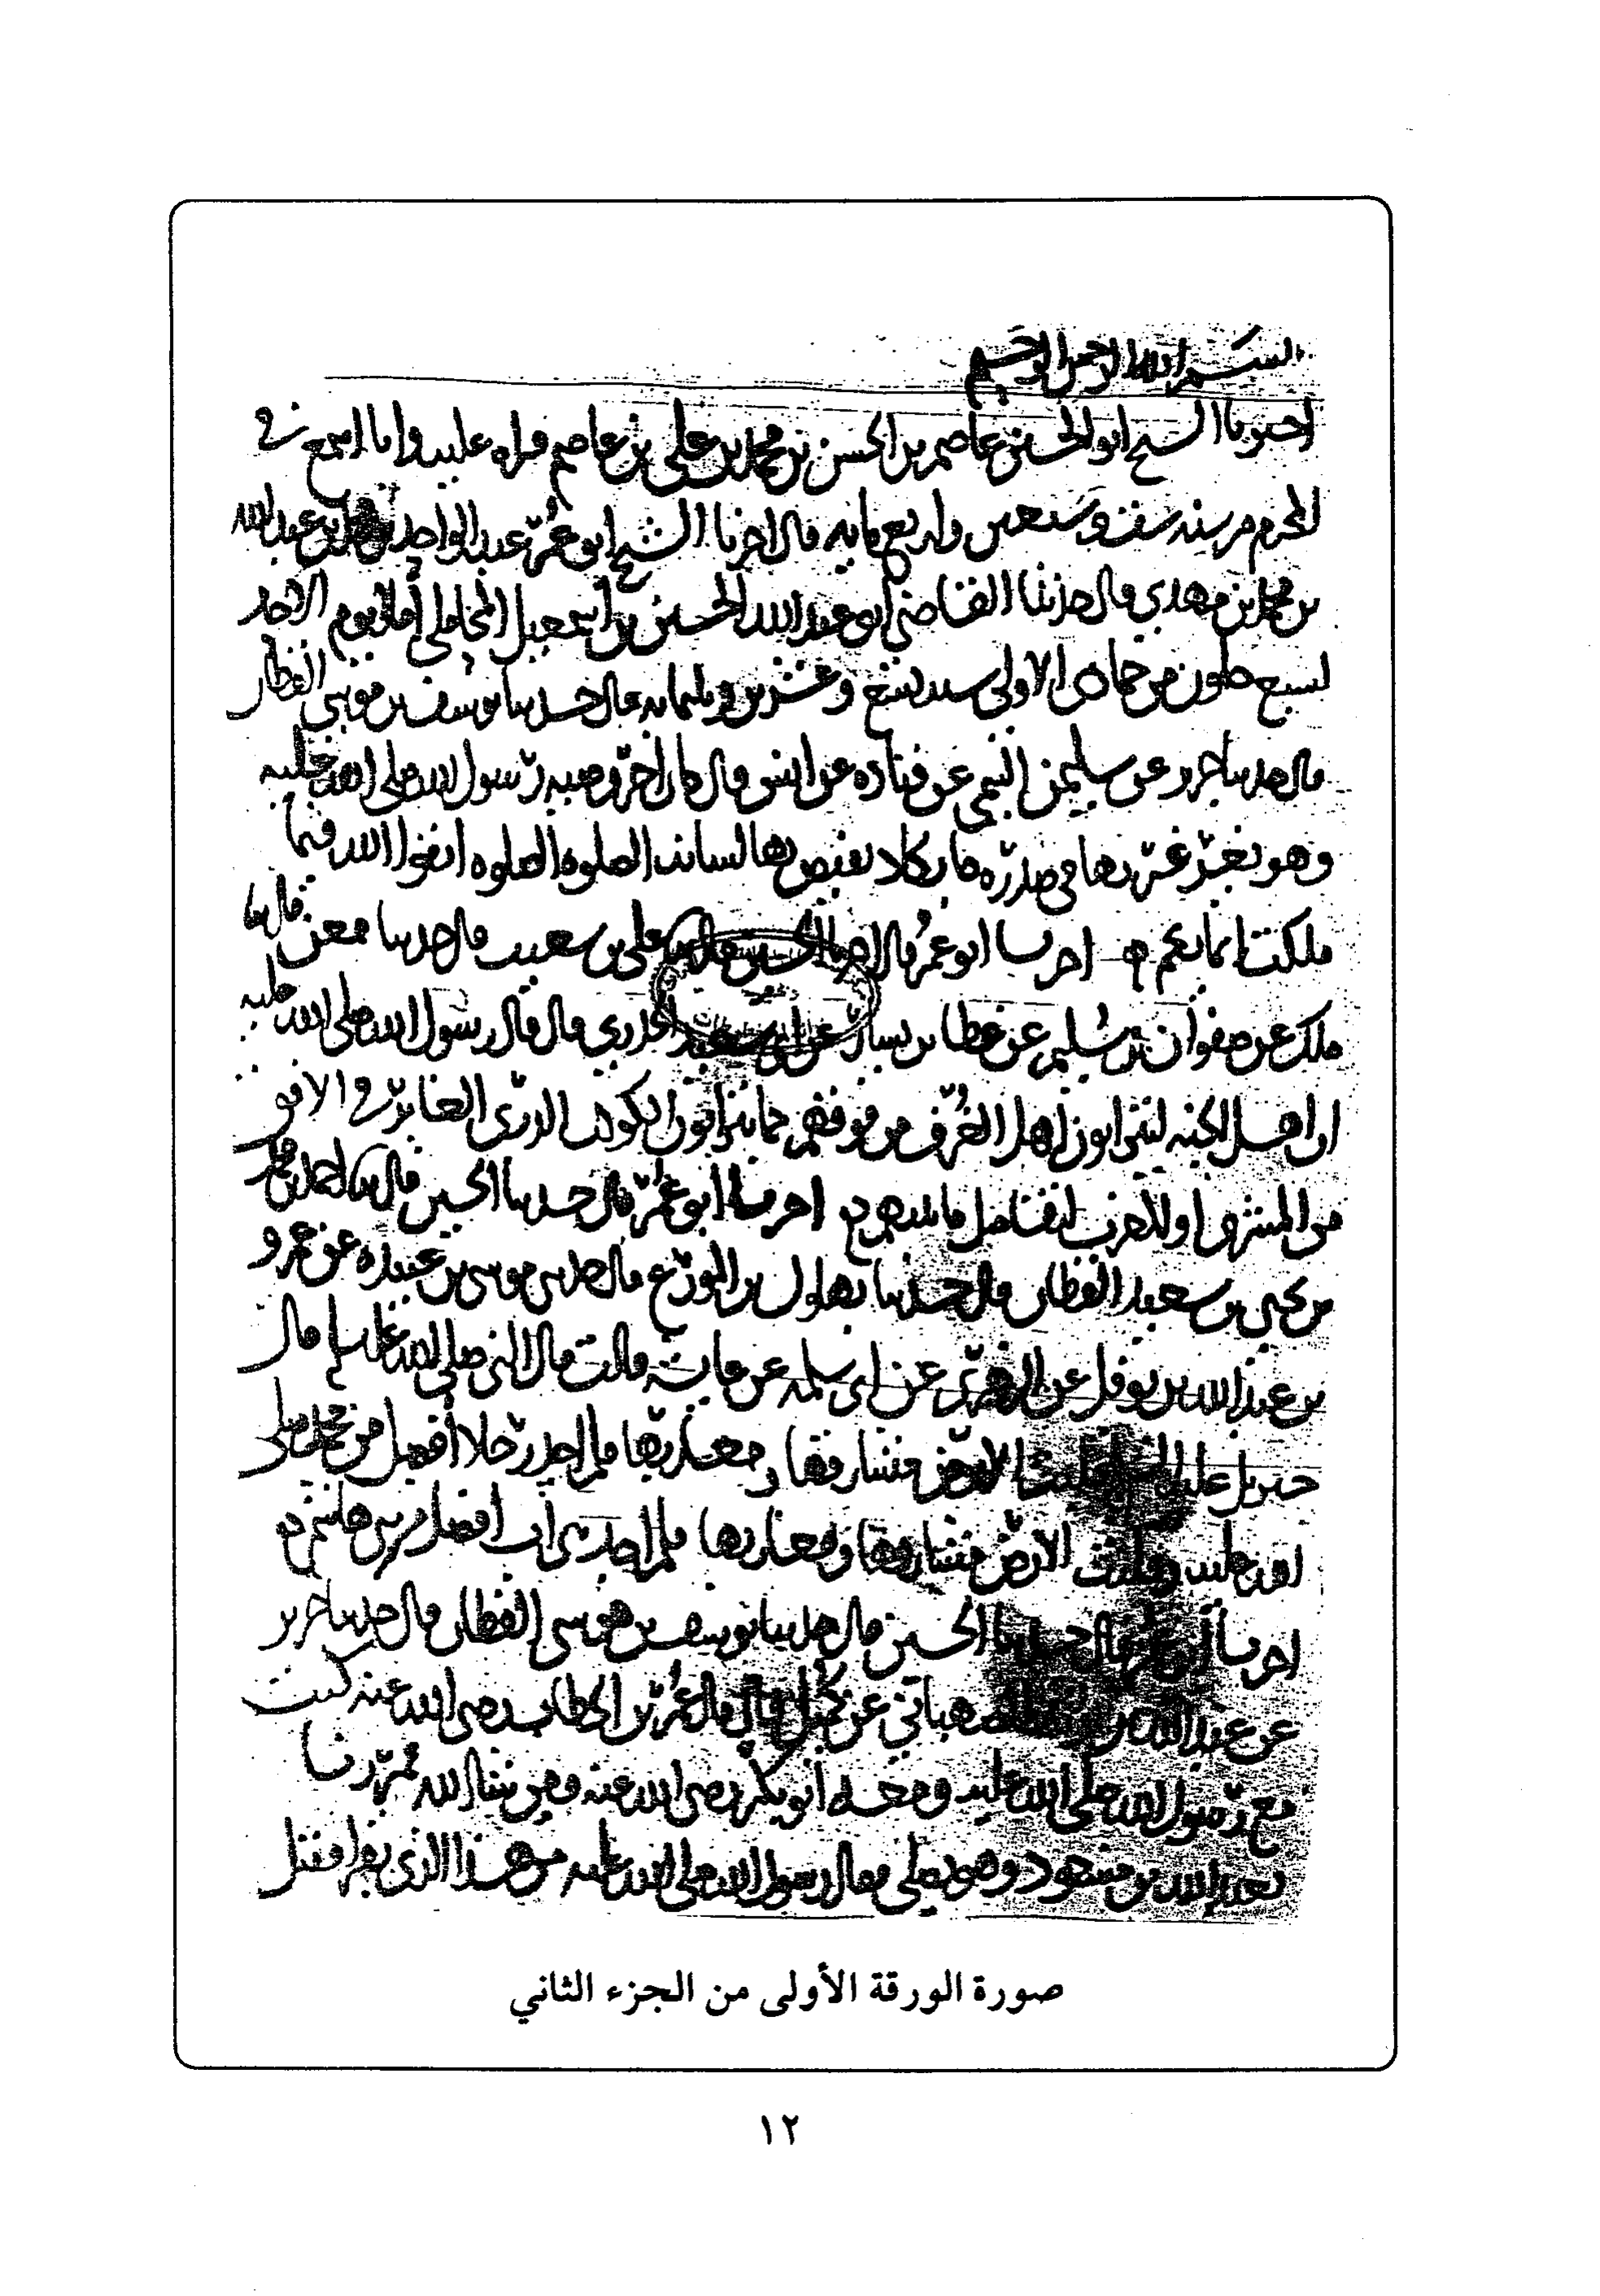 بسم الله الرحمن الرحيم
اخبرنا الشيخ ابو الحسين عاصم بن الحسن بن محمد بن علي بن عاصم قراه عليه وانا اسمع في
المحرم من سنه ست وسبعين واربع مايه قال اخبرنا الشيخ ابو عمر عبد الواحد بن محمد بن عبد الله
بن محمد بن مهدي قال حدثنا القاضي ابو عبد الله الحسين بن اسمعيل المحاملي املا يوم الاحد
لسبع خلون من جمادى الاولى سنه تسع وعشرين وثلثمايه قال حدثنا يوسف بن موسى القطان
قال حدثنا جرير عن سليمن التيمي عن قتاده عن انس قال كان اخر وصيه رسول الله صلى الله عليه
وهو يغرغر بها في صدره ما يكاد يفيض بها لسانه الصلوه الصلوه اتقوا الله فيما
ملكت ايمانكم اخبرنا ابو عمر قال اخبرنا الحسين قال علي بن شعيب قال حدثنا معن قال ثنا
ملك عن صفوان بن سليم عن عطا بن يسار عن ابي سعيد الخدري قال قال رسول الله صلى الله عليه
ان اهل الجنه ليتراءون اهل الغرف من فوقهم كما يتراءون الكوكب الدري الغابر في الافق
من المشرق او المغرب لتفاضل ما بينهم اخبرنا ابو عمر قال حدثنا الحسين قال ثنا احمد بن محمد
بن يحيى بن سعيد القطان قال حدثنا بهلول بن المورع قال حدثني موسى بن عبيده عن عمرو
بن عبد الله بن نوفل عن الزهري عن ابي سلمه عن عايشه قالت قال النبي صلى الله عليه قال
جبريل عليه قلبت الارض مشارقها ومغاربها فلم اجد رجلا افضل من محمد صلى
الله عليه وقلبت الارض مشارقها ومغاربها فلم اجد بني اب افضل من بني هاشم
اخبرنا ابو عمر قال حدثنا الحسين قال حدثنا يوسف بن موسى القطان قال حدثنا جرير
عن عبد الله بن الصهباني عن كميل قال قال عمر بن الخطاب رضي الله عنه كنت
مع رسول الله صلى الله عليه ومعه ابو بكر رضي الله عنه ومن شا الله فمررنا
بعبد الله بن مسعود وهو يصلي فقال رسول الله صلى الله عليه من هذا الذي يقرا فقيل
صورة الورقة الأولى من الجزء الثاني
١٢